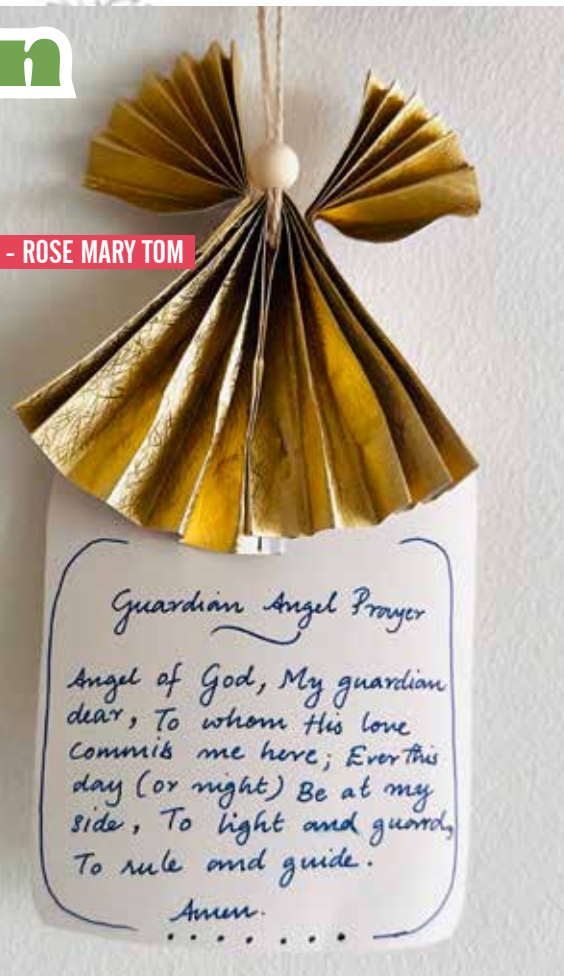 n
- ROSE MARY TOM
Guardian Angel Prayer
Angel of God, My guardian
dear, To whom His love
Commits me here; Ever this
day (or night) Be at my
side, To light and guard,
To rule and guide.
Amen.